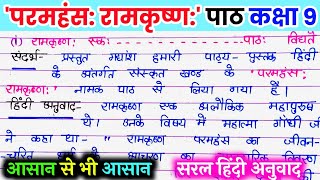 'परमहंस: रामकृष्ण:' पाठ कक्षा 9
(i) रामकृष्ण: एक: पाठ: विद्यते
संदर्भ- प्रस्तुत गद्यांश हमारी पाठ्य- पुस्तक हिंदी
के अंतर्गत संस्कृत खण्ड के 'परमहंस:
रामकृष्ण:' नामक पाठ से लिया गया है।
हिंदी अनुवाद- रामकृष्ण एक अलौकिक महापुरुष
थे। उनके विषय में महात्मा गाँधी जी
ने कहा था- " रामकृष्ण परमहंस का जीवन-
आसान से भी आसान
सरल हिंदी अनुवाद